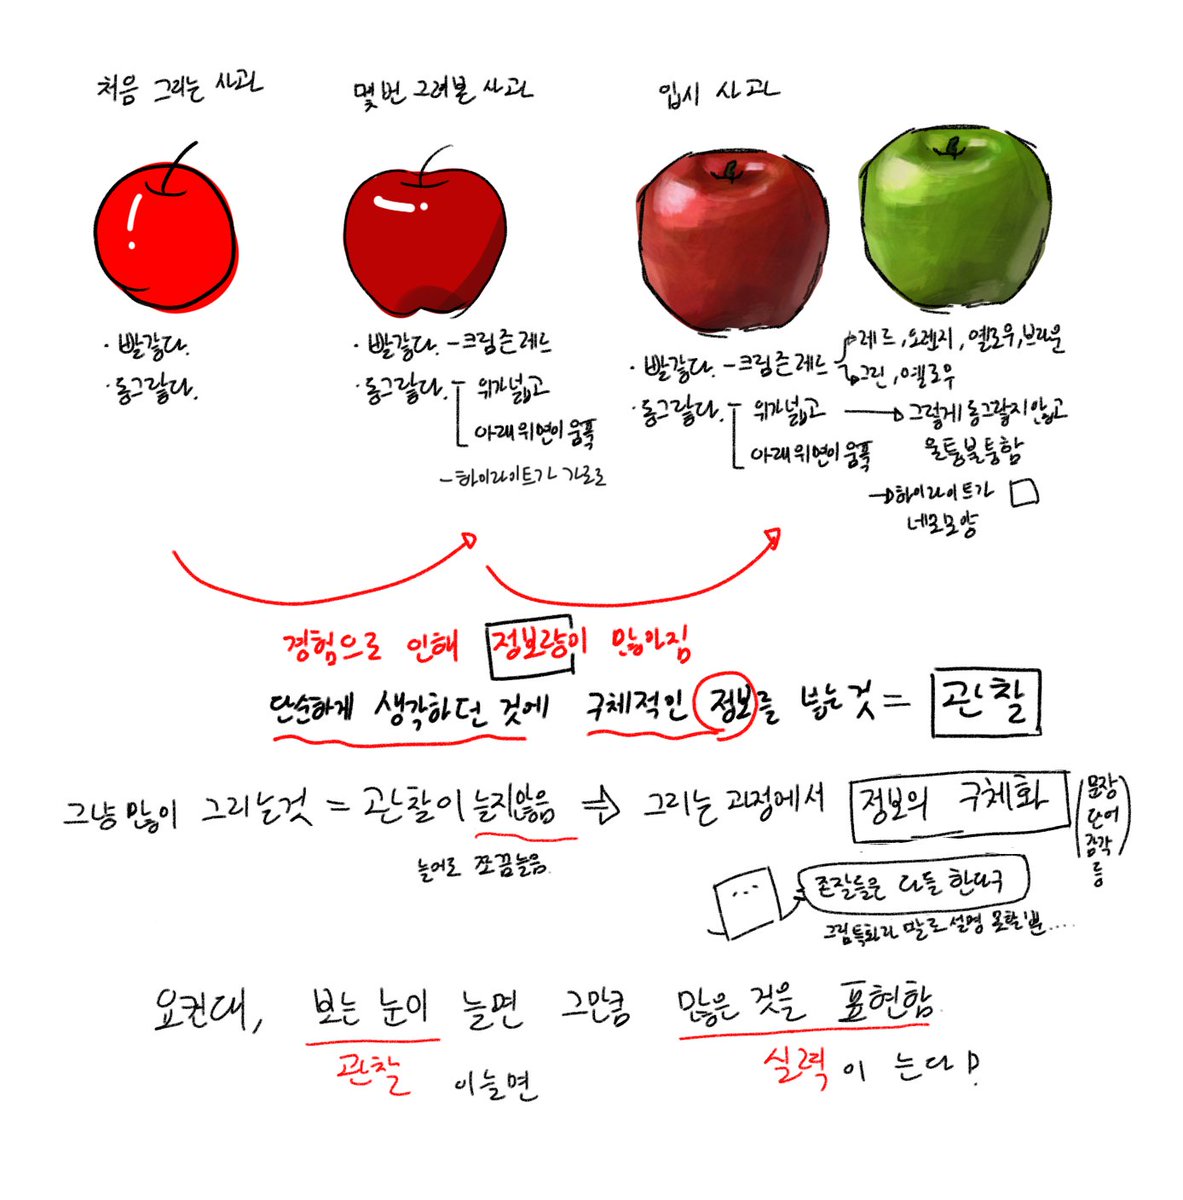 처음 그리는 사과
· 빨갛다.
· 동그랗다.
몇번 그려본 사과
· 빨갛다. - 크림슨레드
· 동그랗다. 위가넓고
아래위면이움푹
- 하이라이트가 가로로
입시 사과
· 빨갛다. - 크림슨레드
레드, 오렌지, 옐로우, 브라운
그린, 옐로우
· 동그랗다. 위가넓고
아래위면이움푹
그렇게 동그랗지않고
울퉁불퉁함
하이라이트가
네모모양
경험으로 인해 정보량이 많아짐
단순하게 생각하던 것에 구체적인 정보를 넓는것 = 관찰
그냥많이 그리는것 = 관찰이 늘지않음 ⇒ 그리는 과정에서 정보의 구체화
늘어도 쪼끔늘음.
(문장
단어
조각
등)
...
존잘들은 다들 한다구
그림특화라 말로설명 못할뿐....
요컨대, 보는 눈이 늘면 그만큼 많은 것을 표현함.
관찰 이늘면
실력이 는다!